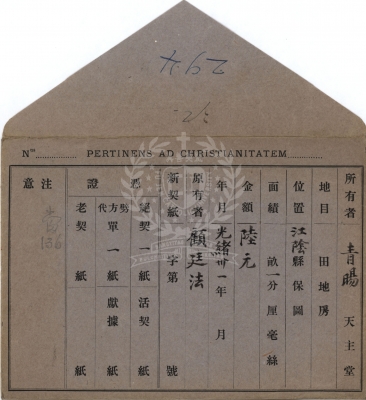 294
Nᵐ PERTINENS AD CHRISTIANITATEM
所有者 青暘 天主堂
地目 田地房
位置 江陰縣 保 圖
面績 畝 一分 厘 毫 絲
金額 陸元
年月 光緒卅一年 月
原有者 顧廷法
新契紙 字第 號
憑證
絕契一紙 活契 紙
代方單一紙 獻據 紙
老契 紙 紙
注意
136